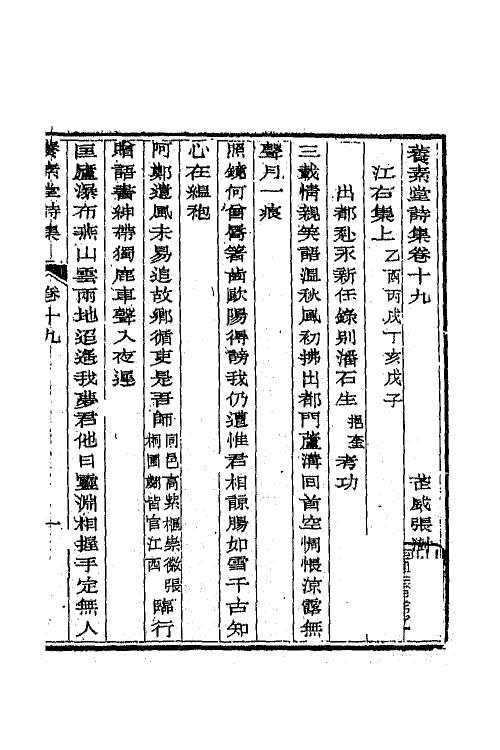 養素堂詩集卷十九
武威張澍
江右集上 乙酉丙戌丁亥戊子
出都赴永新任錄别潘石生 挹奎 考功
三載情親笑語溫秋風初拂出都門蘆溝回首空惆悵涼露無
聲月一痕
照鏡何曾唇箸齒歐陽得謗我仍遭惟君相諒腸如雪千古知
心在縕袍
阿鄭遺風未易追故鄉循吏是吾師 同邑高紫樞崇徽張桐圃鄰皆官江西 臨行
贈語書紳帶獨鹿車聲入夜遲
匡廬瀑布燕山雲兩地迢遙我夢君他日靈淵相握手定無人
養素堂詩集
卷十九
一